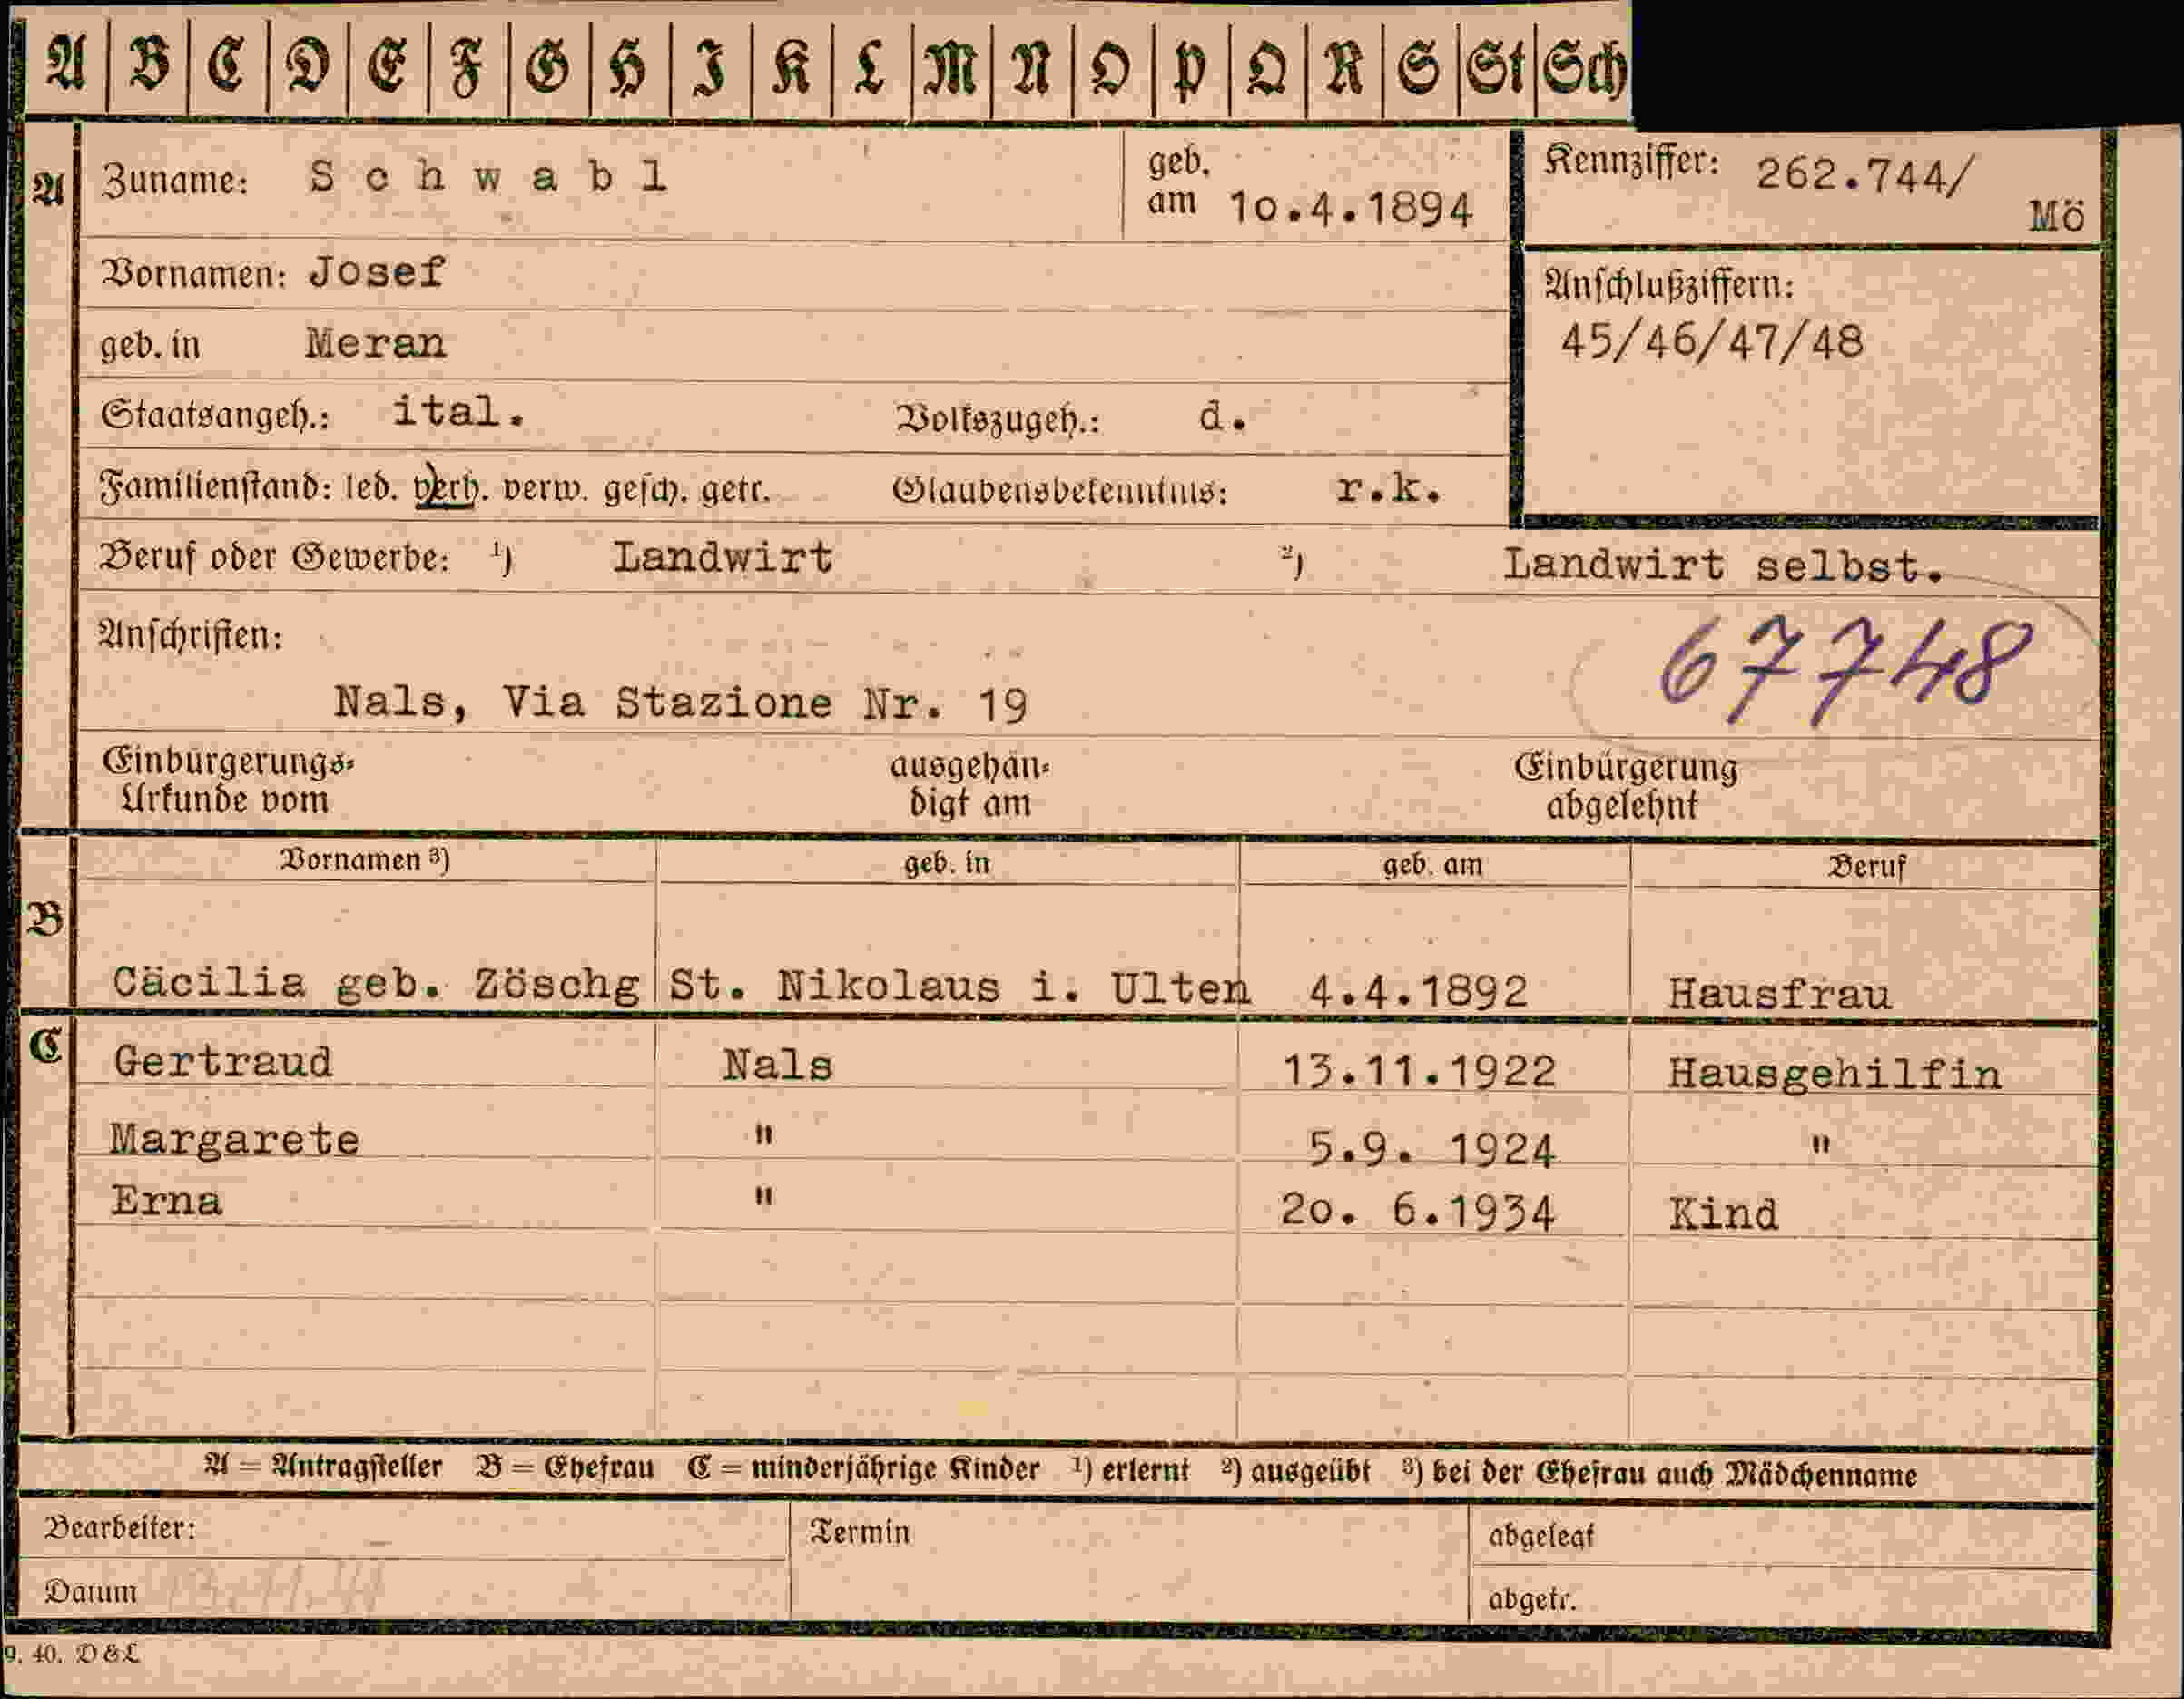 A B C D E F G H I K L M N O P Q R S St Sch
A Zuname: Schwabl geb. am 10.4.1894 Kennziffer: 262.744/ Mö
Vornamen: Josef Anschlußziffern:
geb. in Meran 45/46/47/48
Staatsangeh.: ital. Volkszugeh.: d.
Familienstand: led. verh. verw. gesch. getr. Glaubensbekenntnis: r.k.
Beruf oder Gewerbe: ¹) Landwirt ²) Landwirt selbst.
Anschriften: 67748
Nals, Via Stazione Nr. 19
Einbürgerungs- ausgehän- Einbürgerung
Urkunde vom digt am abgelehnt
Vornamen ³) geb. in geb. am Beruf
B
Cäcilia geb. Zöschg St. Nikolaus i. Ulten 4.4.1892 Hausfrau
C Gertraud Nals 13.11.1922 Hausgehilfin
Margarete " 5.9. 1924 "
Erna " 20. 6.1934 Kind
A = Antragsteller B = Ehefrau C = minderjährige Kinder ¹) erlernt ²) ausgeübt ³) bei der Ehefrau auch Mädchenname
Bearbeiter: Termin abgelegt
Datum 13.11.41 abgetr.
9. 40. D & L